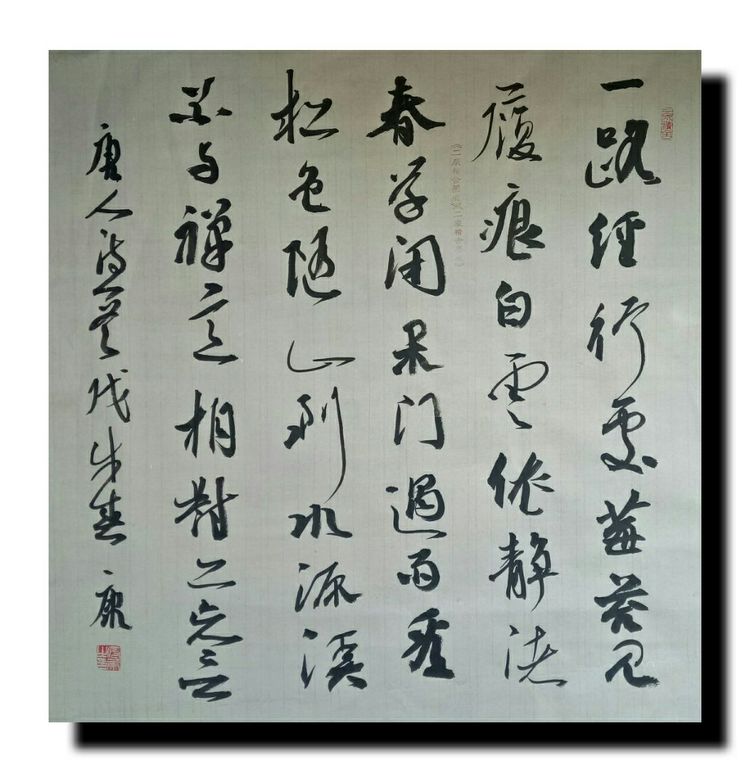 一路经行處莓苔见
履痕白雲依静渚
春草闭门過雨看
松色随山到水源溪
花与禅意相對亦忘言
唐人诗一首戊戌春康